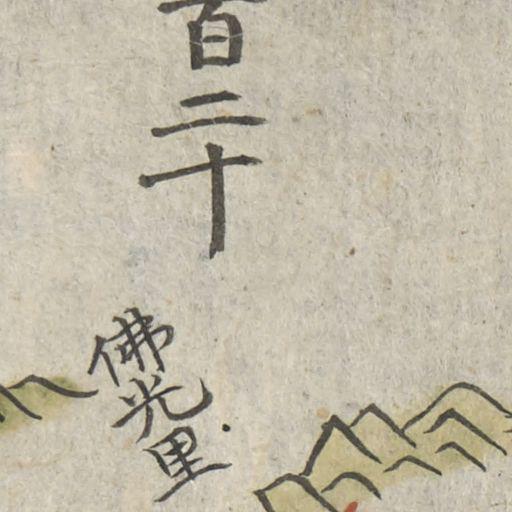 百二十
佛光里